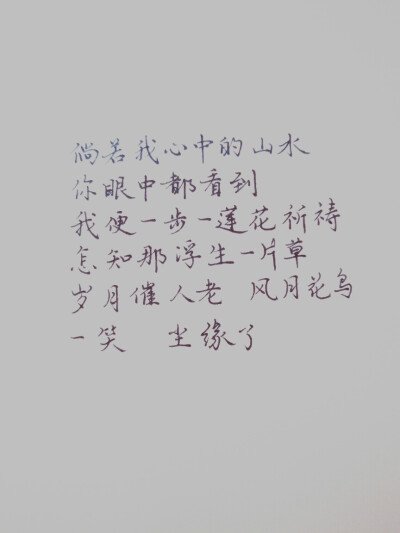 倘若我心中的山水
你眼中都看到
我便一步一莲花祈祷
怎知那浮生一片草
岁月催人老 风月花鸟
一笑 尘缘了